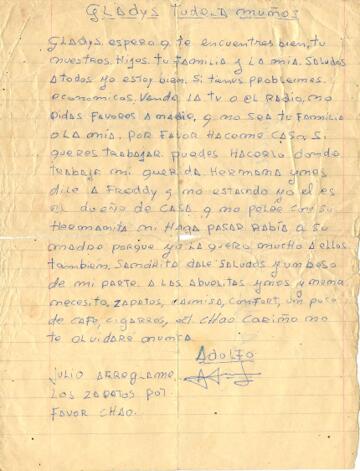 GLADYS TUDELA MUÑOS
GLADYS, espero q te encuentres bien, tu
nuestros Hijos, tu Familia y la mia. Saludos
A todos yo estoy bien. Si tienes problemes
economicos. Vende la TV o el Radio, no
Pidas Favores A nadie, q no sea tu Familia
o la mia. por Favor Haceme Casa. Si
queres trabajar puedes Hacerlo donde
trabaja mi querida Hermana ynes
dile A Freddy q no estando yo el es
el dueño de casa q no pelee con su
Hermanita ni Haga Pasar Rabia a su
madre porque yo la quero mucho a ellos
tambien. Sandrita dale Saludos y un beso
de mi parte. A las Abuelitas ynes y mema
necesito, Zapatos, camisa, comfort, un poco
de cafe, cigarros, CHAO Cariño no
te olvidare nunca
Adolfo
Julio Arreglame
Los Zapatos por
Favor CHAO.